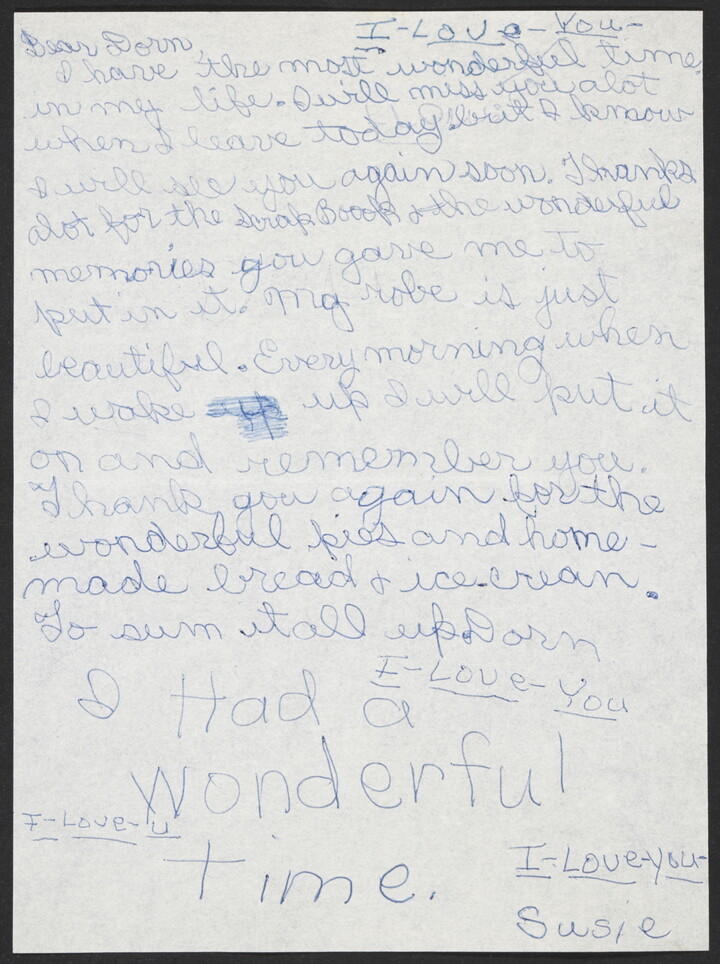 I-Love-You-
Dear Dorn,
I have the most wonderful time
in my life. I will miss you alot
when I leave today but I know
I will see you again soon. Thanks
alot for the Scrap Boook & the wonderful
memories you gave me to
put in it. My robe is just
beautiful. Every morning when
I wake up I will put it
on and remember you.
Thank you again for the
wonderful pies and home-
made bread & ice-crean.
To sum it all up Dorn
I-Love-You
I Had a
Wonderful
I-Love-u
time.
I-Love-you-
Susie